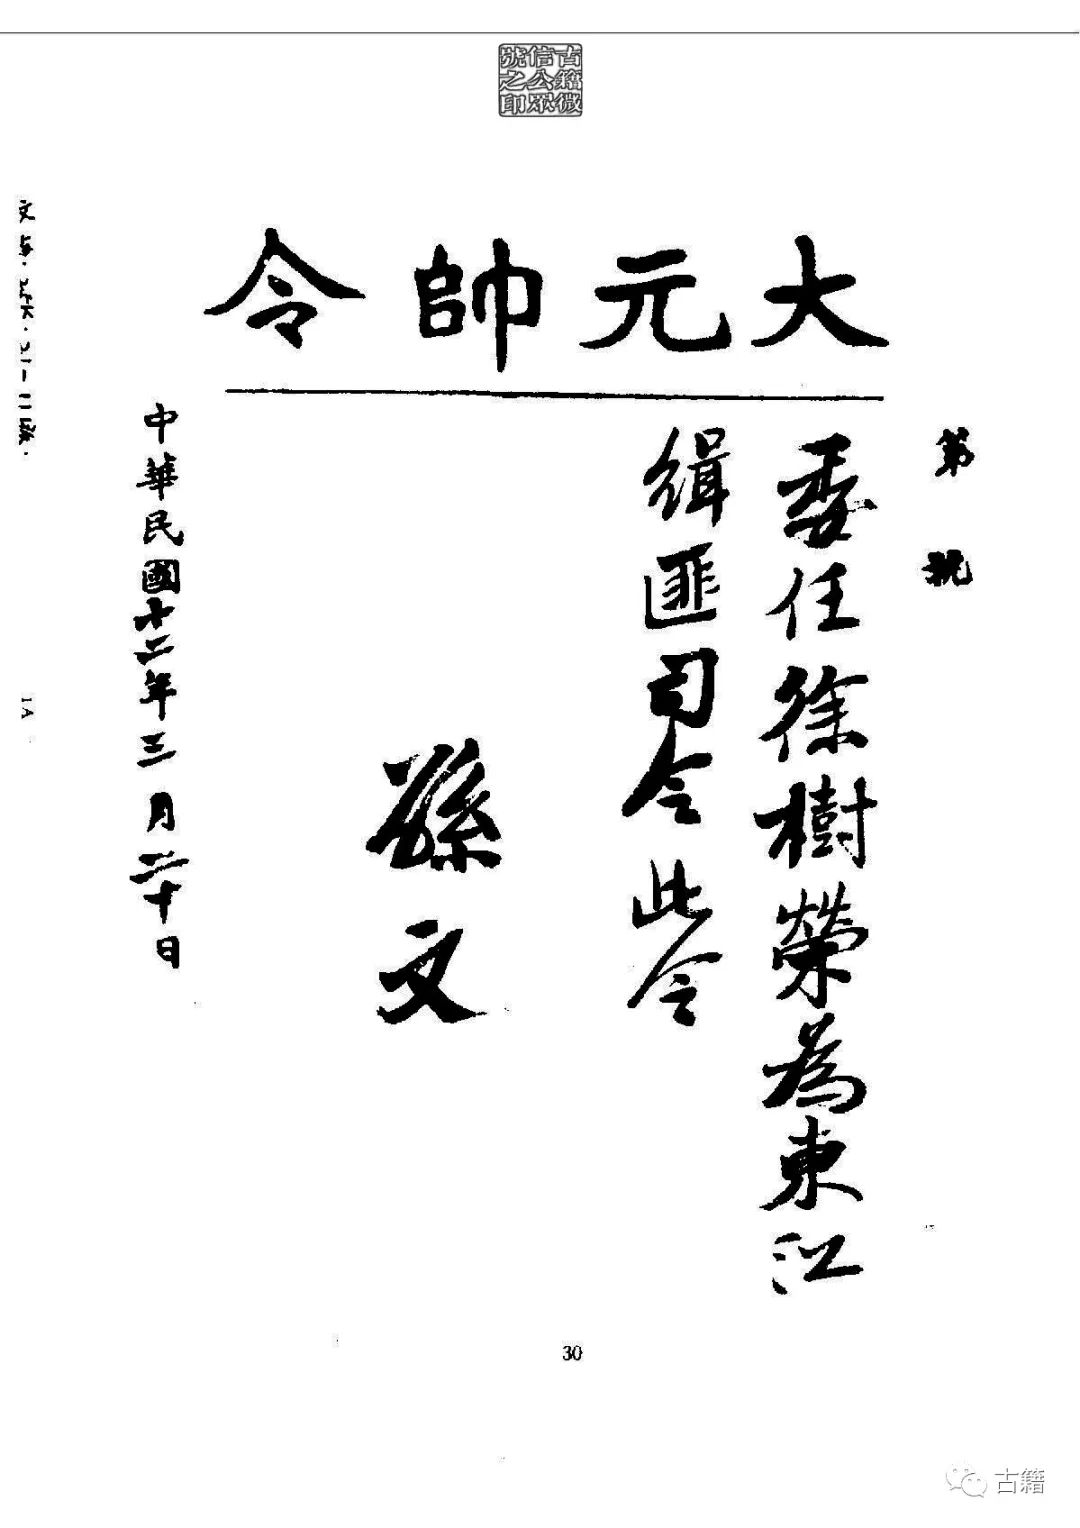 古籍微信公眾號之印
大元帥令
第　號
委任徐樹榮為東江
緝匪司令此令
孫文
中華民國十二年三月二十日
1A
30
古籍